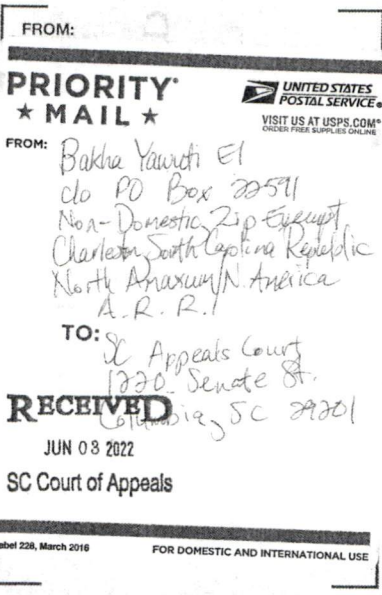 FROM:
PRIORITY®
★ MAIL ★
UNITED STATES
POSTAL SERVICE®
VISIT US AT USPS.COM®
ORDER FREE SUPPLIES ONLINE
FROM: Bakha Yawuti El
c/o PO Box 22591
Non-Domestic, Zip Exempt
Charleston, South Carolina Republic
North Amaxum/N. America
A. R. R.
TO: SC Appeals Court
1220 Senate St.
Columbia, SC 29201
RECEIVED
JUN 03 2022
SC Court of Appeals
abel 228, March 2016
FOR DOMESTIC AND INTERNATIONAL USE